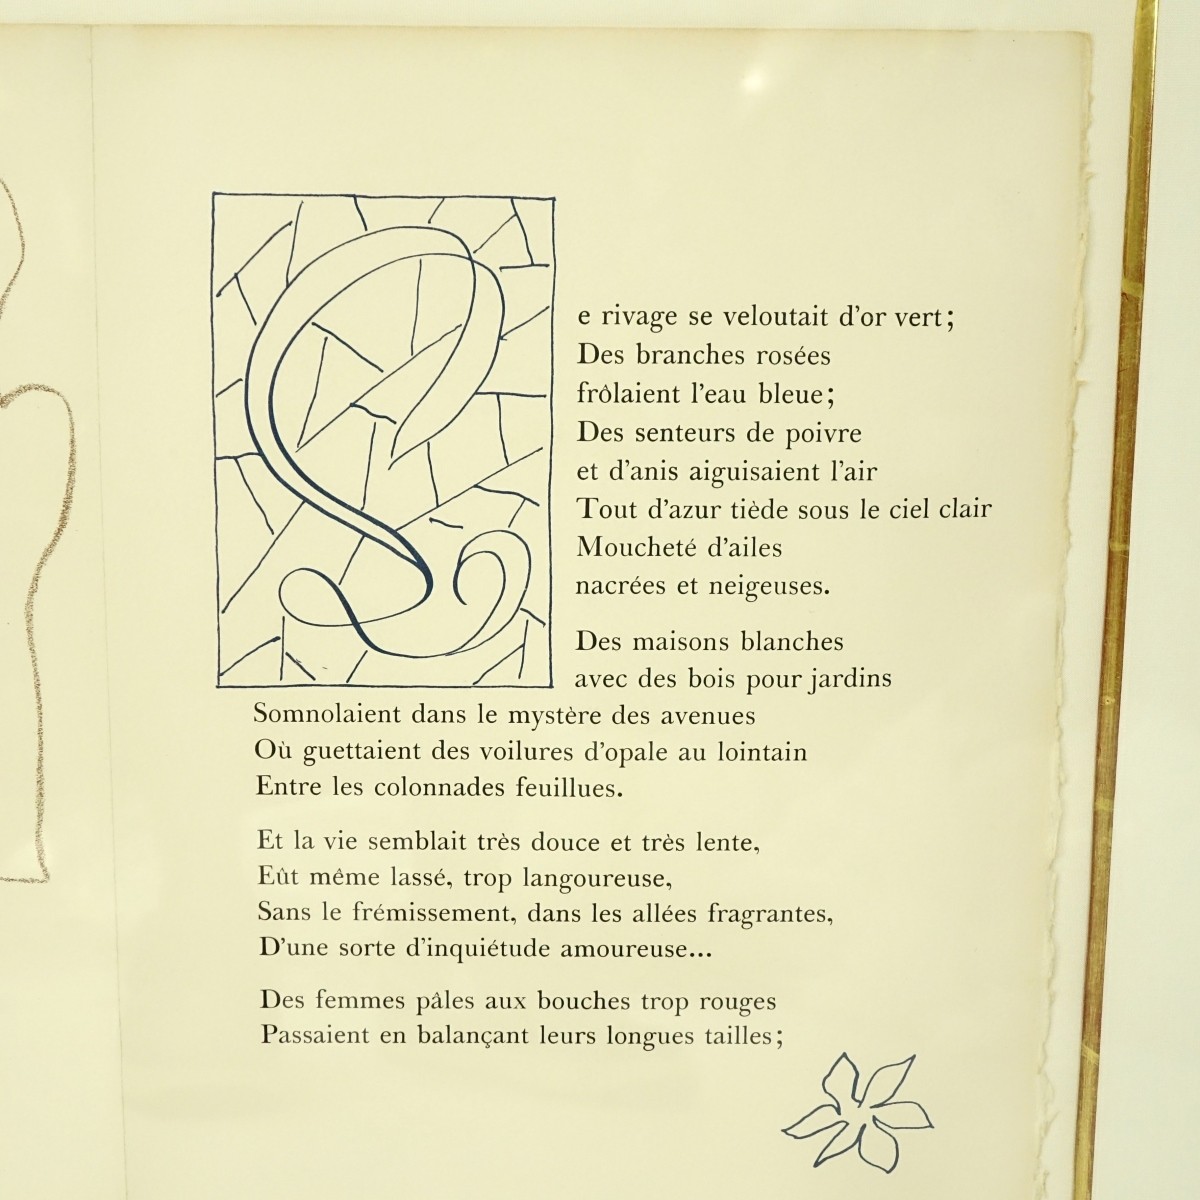 Le rivage se veloutait d'or vert;
Des branches rosées
frôlaient l'eau bleue;
Des senteurs de poivre
et d'anis aiguisaient l'air
Tout d'azur tiède sous le ciel clair
Moucheté d'ailes
nacrées et neigeuses.
Des maisons blanches
avec des bois pour jardins
Somnolaient dans le mystère des avenues
Où guettaient des voilures d'opale au lointain
Entre les colonnades feuillues.
Et la vie semblait très douce et très lente,
Eût même lassé, trop langoureuse,
Sans le frémissement, dans les allées fragrantes,
D'une sorte d'inquiétude amoureuse...
Des femmes pâles aux bouches trop rouges
Passaient en balançant leurs longues tailles;